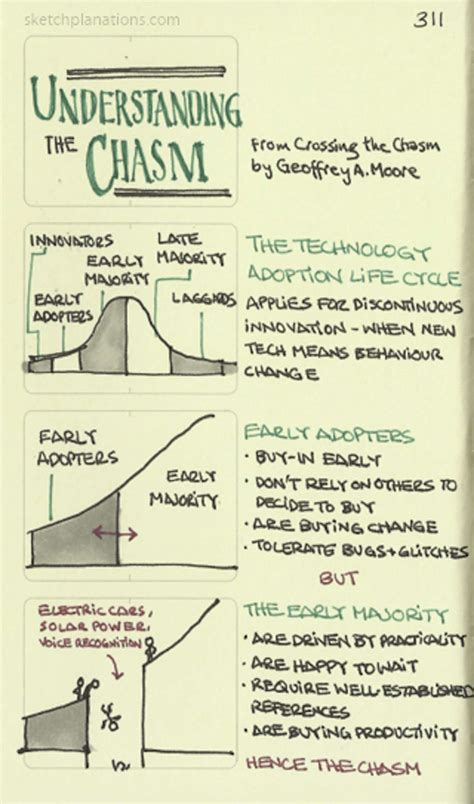 sketchplanations.com
311
UNDERSTANDING
THE CHASM
From Crossing the Chasm
by Geoffrey A. Moore
INNOVATORS
EARLY
ADOPTERS
EARLY
MAJORITY
LATE
MAJORITY
LAGGARDS
THE TECHNOLOGY
ADOPTION LIFE CYCLE
APPLIES FOR DISCONTINUOUS
INNOVATION - WHEN NEW
TECH MEANS BEHAVIOUR
CHANGE
EARLY
ADOPTERS
EARLY
MAJORITY
EARLY ADOPTERS
· BUY-IN EARLY
· DON'T RELY ON OTHERS TO
DECIDE TO BUY
· ARE BUYING CHANGE
· TOLERATE BUGS + GLITCHES
BUT
ELECTRIC CARS,
SOLAR POWER,
VOICE RECOGNITION
THE EARLY MAJORITY
· ARE DRIVEN BY PRACTICALITY
· ARE HAPPY TO WAIT
· REQUIRE WELL ESTABLISHED
REFERENCES
· ARE BUYING PRODUCTIVITY
HENCE THE CHASM